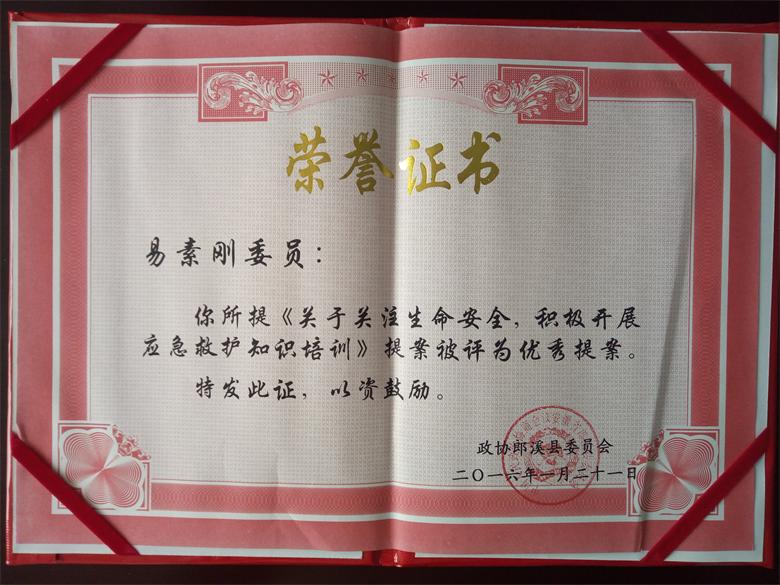 荣誉证书
易素刚委员：
你所提《关于关注生命安全，积极开展
应急救护知识培训》提案被评为优秀提案。
特发此证，以资鼓励。
政协郎溪县委员会
二〇一六年一月二十一日